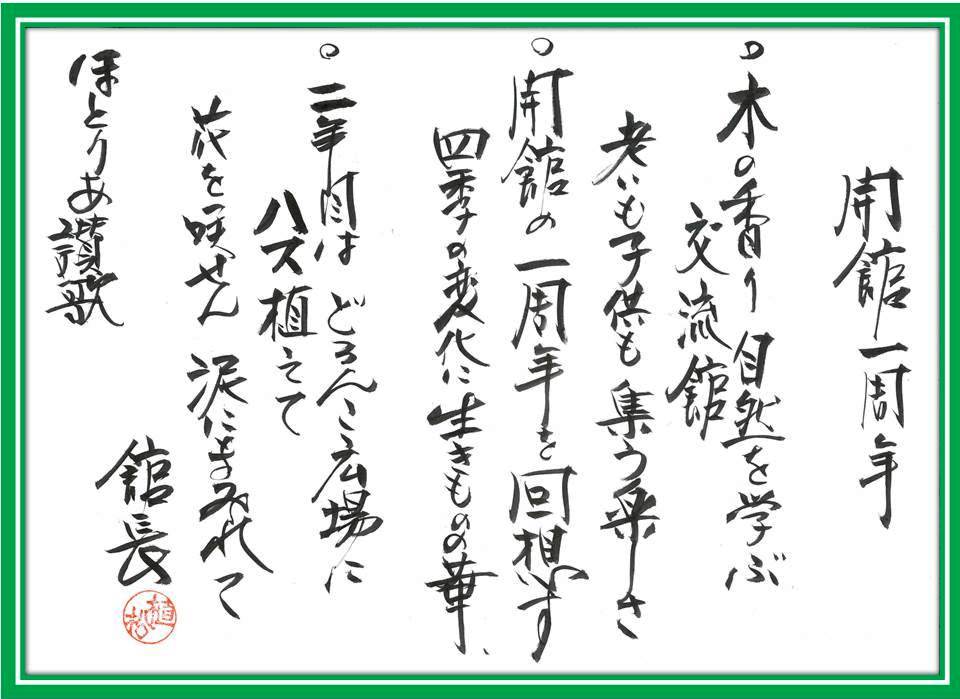 開館一周年
○木の香り 自然を学ぶ
交流館
老いも子供も 集う楽しさ
○開館の 一周年を 回想す
四季の変化に 生きものの華
○二年目は どろんこ広場に
ハズ植えて
花を咲せん 泥にまみれて
ほとりあ讃歌
館長
植松